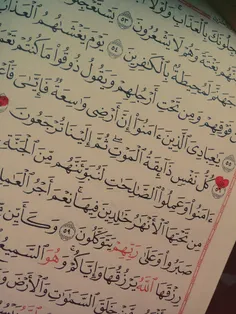 جِلُونَكَ بِالْعَذَابِ وَلَوْلَا
بَغْتَةً وَهُمْ لَا يَشْعُرُونَ ٥٣ يَسْتَعْجِلُو
جَهَنَّمَ لَمُحِيطَةٌ بِالْكَٰفِرِينَ ٥٤ يَوْمَ يَغْشَىٰهُمُ الْعَذَا
فَوْقِهِمْ وَمِن تَحْتِ أَرْجُلِهِمْ وَيَقُولُ ذُوقُوا مَا كُنتُمْ تَعْمَ
يَٰعِبَادِيَ الَّذِينَ ءَامَنُوا إِنَّ أَرْضِي وَٰسِعَةٌ فَإِيَّٰيَ فَا
كُلُّ نَفْسٍ ذَآئِقَةُ الْمَوْتِ ثُمَّ إِلَيْنَا تُرْجَعُونَ
ءَامَنُوا وَعَمِلُوا الصَّٰلِحَٰتِ لَنُبَوِّئَنَّهُم مِّنَ الْجَنَّةِ
مِن تَحْتِهَا الْأَنْهَٰرُ خَٰلِدِينَ فِيهَا نِعْمَ أَجْرُ الْعَٰمِلِ
صَبَرُوا وَعَلَىٰ رَبِّهِمْ يَتَوَكَّلُونَ ٥٩ وَكَأَيِّن مِّن
رِزْقَهَا اللَّهُ يَرْزُقُهَا وَإِيَّاكُمْ وَهُوَ السَّمِيعُ
خَلَقَ السَّمَٰوَٰتِ وَالْأَرْضَ وَ